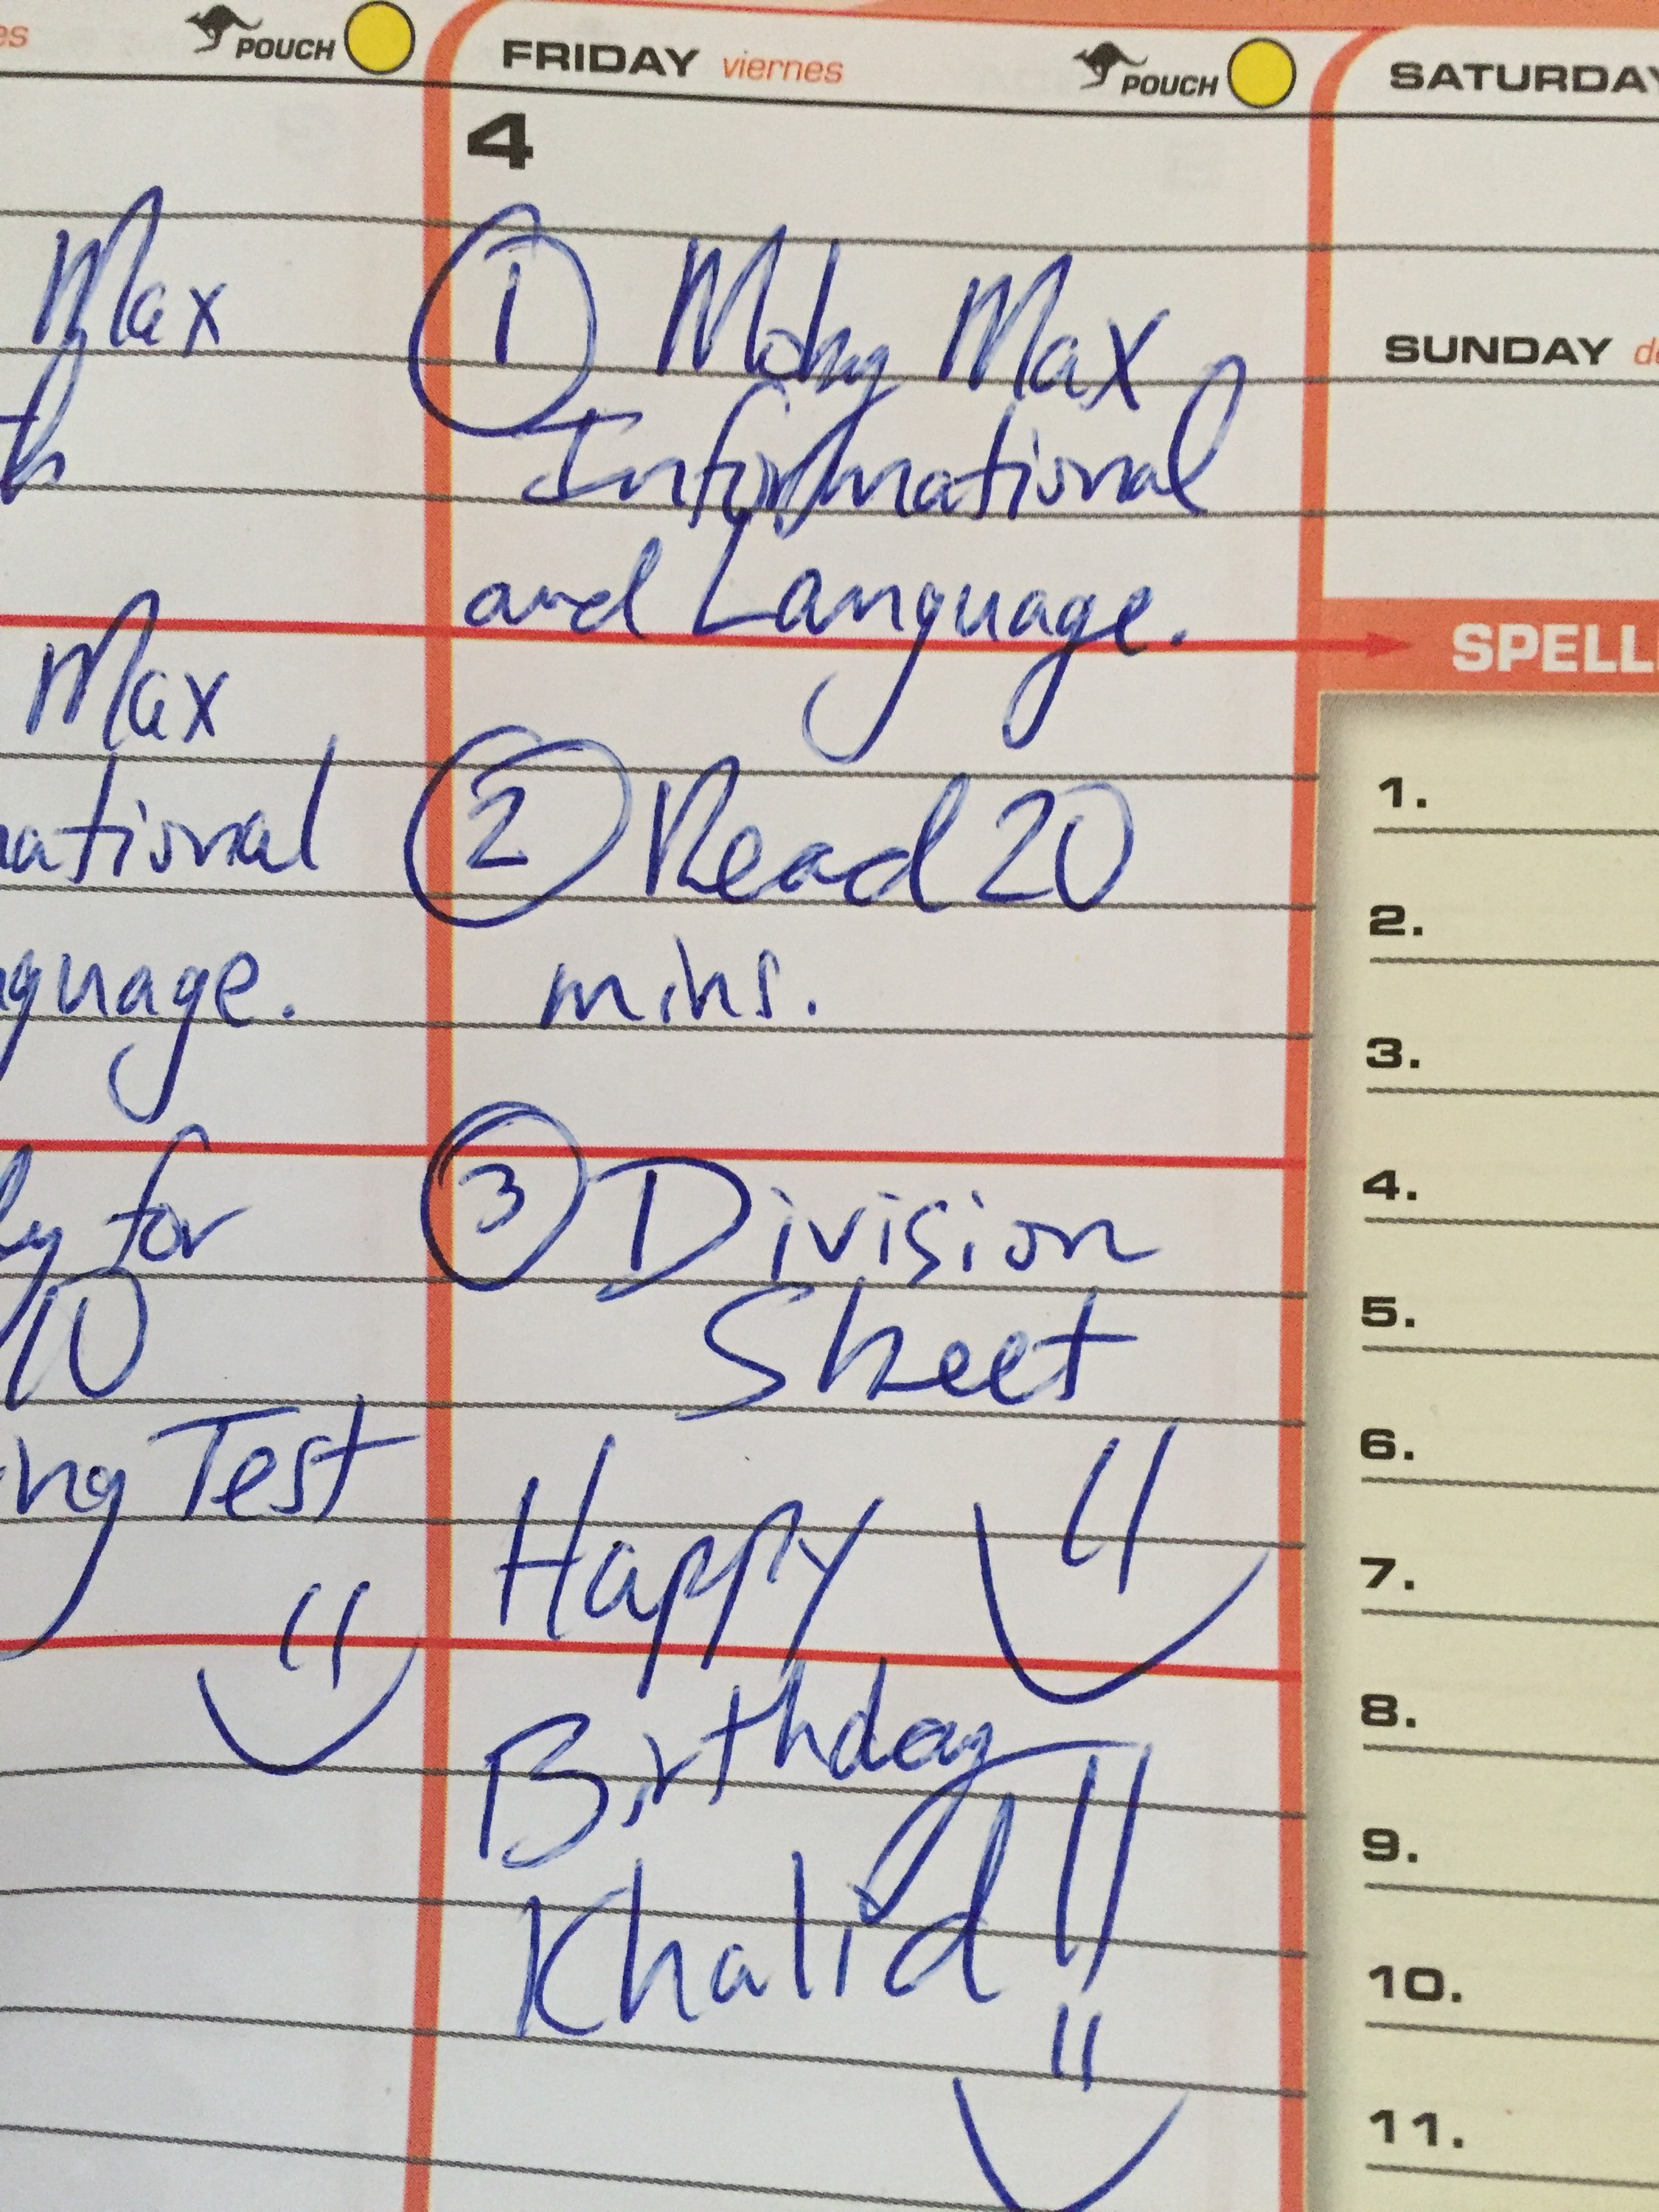 es POUCH
Max
th
Max
national
nguage.
for
10
ng Test
FRIDAY viernes POUCH
4
1 Moby Max
Informational
and Language.
2 Read 20
mins.
3 Division
Sheet
Happy
Birthday
Khalid!!
SATURDAY
SUNDAY do
SPELL
1.
2.
3.
4.
5.
6.
7.
8.
9.
10.
11.